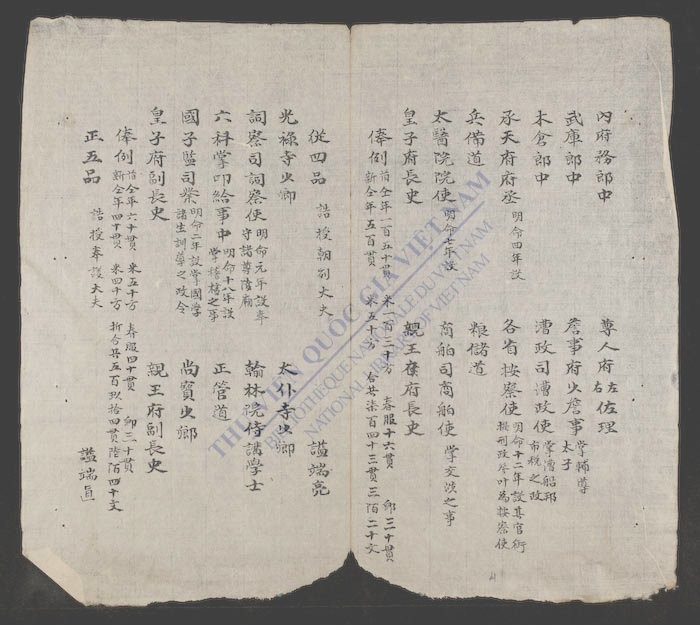 內府務郎中 尊人府左右佐理
武庫郎中 詹事府少詹事 掌輔導太子
木倉郎中 漕政司漕政使 掌漕船 市税之政
承天府府丞 明命四年設 各省按察使 明命十二年設專官 刑政 為按察使
兵備道 粮儲道
太醫院院使 明命七年設 商舶司商舶使 掌交涉之事
皇子府長史 親王府長史
俸例 前全年一百五十貫 米一百二十方 春服十六貫 卹三十貫
新全年五百貫 米五十方 合共柒百四十三貫三陌二十文
從四品 誥授朝列大夫 謚端亮
光祿寺少卿 太仆寺少卿
詞察司詞察使 明命元年設奉守諸尊陵廟 翰林院侍講學士
六科掌印給事中 明命十八年設掌稽 之事 正管道
國子監司業 明命二年設掌國學諸生訓導之政令 尚寶少卿
皇子府副長史 親王府副長史
俸例 前全年六十貫 米五十方 春服四十貫 卹三十貫
新全年四十貫 米四十方 折合共五百玖拾四貫陸陌四十文
正五品 誥授奉議大夫 謚端直
THƯ VIỆN QUỐC GIA VIỆT NAM
BIBLIOTHÈQUE NATIONALE DU VIETNAM
NATIONAL LIBRARY OF VIETNAM